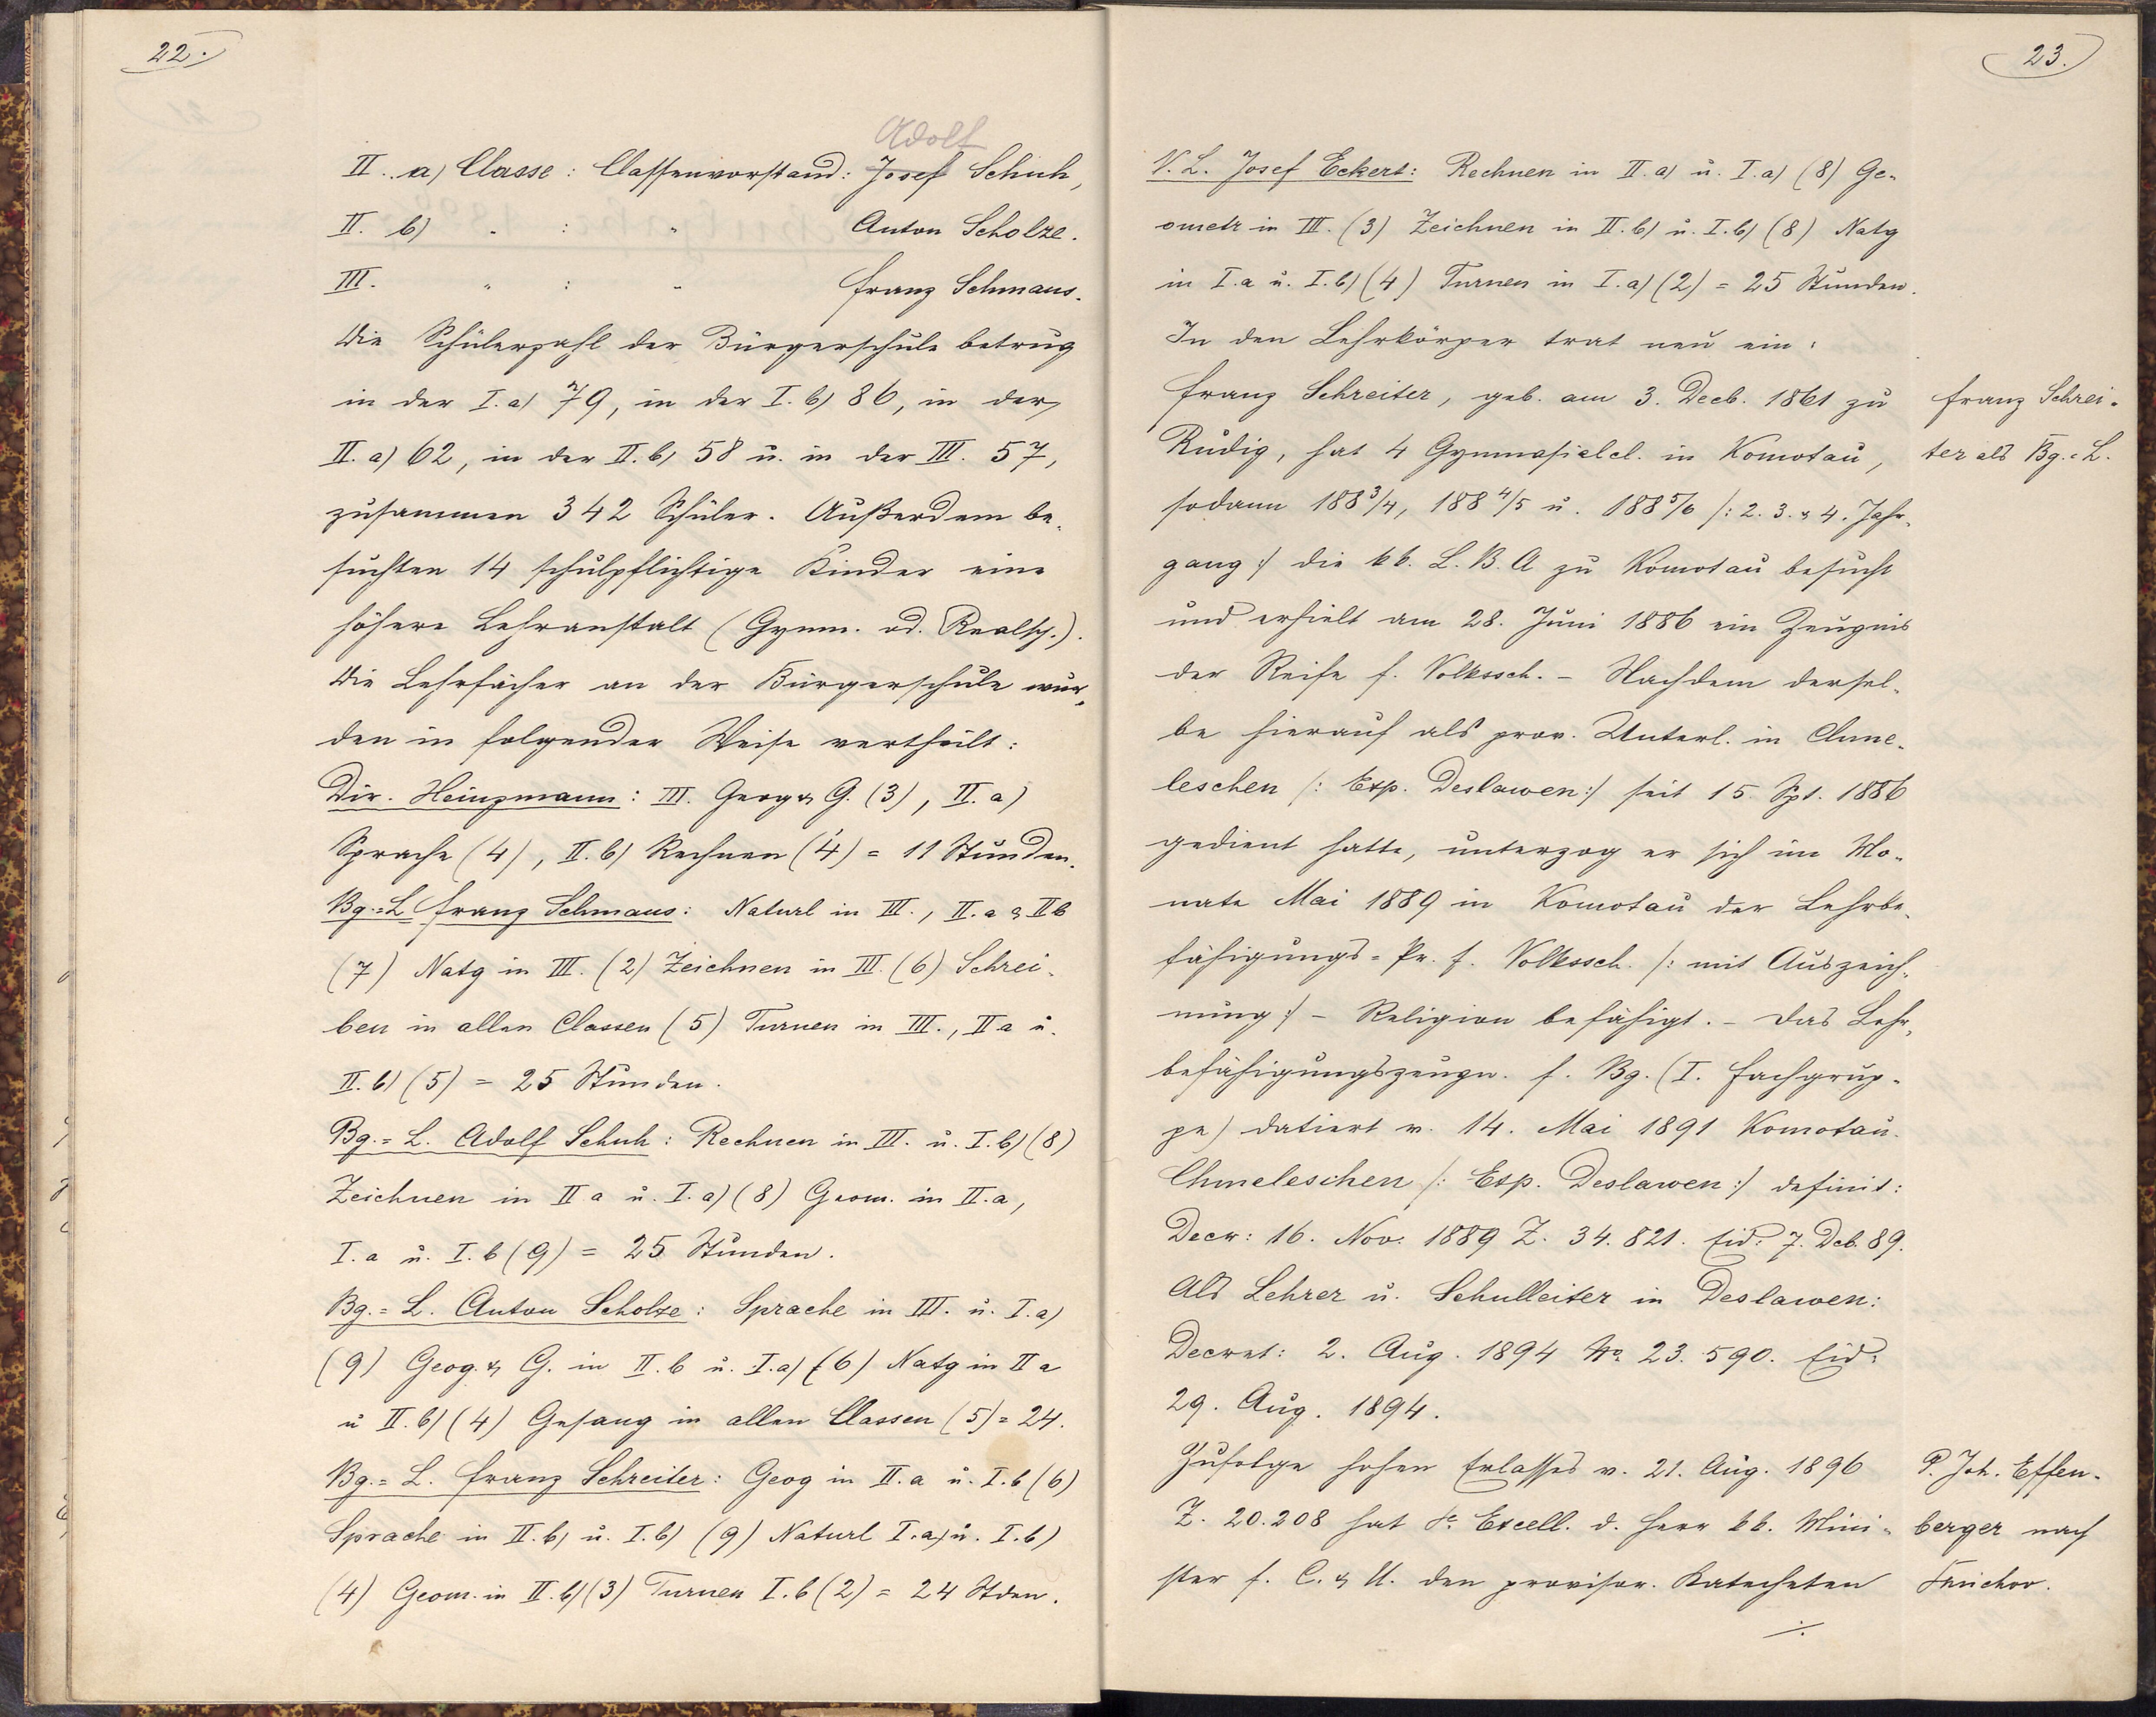 22.
Adolf
II. a) Classe : Classenvorstand: Josef Schuh,
II. b) " : " Anton Scholze.
III. " : " Franz Schmaus.
Die Schülerzahl der Bürgerschule betrug
in der I. a) 79, in der I. b) 86, in der
II. a) 62, in der II. b) 58 u. in der III. 57,
zusammen 342 Schüler. Außerdem be-
suchten 14 schulpflichtige Kinder eine
höhere Lehranstalt (Gymn. od. Realsch.).
Die Lehrfächer an der Bürgerschule wur-
den in folgender Weise vertheilt:
Dir. Heinzmann: III. Geog & G. (3), II. a)
Sprache (4), II. b) Rechnen (4) = 11 Stunden.
Bg.=L Franz Schmaus: Naturl in III., II. a & II b
(7) Natg in III. (2) Zeichnen in III. (6) Schrei-
ben in allen Classen (5) Turnen in III., II a u.
II. b) (5) = 25 Stunden.
Bg.=L. Adolf Schuh: Rechnen in III. u. I. b) (8)
Zeichnen in II a u. I. a) (8) Geom. in II. a,
I. a u. I. b (9) = 25 Stunden.
Bg.=L. Anton Scholze: Sprache in III. u. I. a)
(9) Geog. & G. in II. b u. I. a) (6) Natg in II a
u II. b) (4) Gesang in allen Classen (5) = 24.
Bg.=L. Franz Schreiter: Geog in II. a u. I. b (6)
Sprache in II. b) u. I. b) (9) Naturl I. a) u. I. b)
(4) Geom. in II. b) (3) Turnen I. b (2) = 24 Stden.
23.
V. L. Josef Eckert: Rechnen in II. a) u. I. a) (8) Ge-
ometr in III. (3) Zeichnen in II. b) u. I. b) (8) Natg
in I. a u. I. b) (4) Turnen in I. a) (2) = 25 Stunden.
In den Lehrkörper trat neu ein:
Franz Schreiter, geb. am 3. Decb. 1861 zu
Rudig, hat 4 Gymnasialcl. in Komotau,
sodann 188 3/4, 188 4/5 u. 188 5/6 /: 2. 3. & 4. Jahr-
gang :/ die kk. L. B. A zu Komotau besucht
und erhielt am 28. Juni 1886 ein Zeugnis
der Reife f. Volkssch. – Nachdem dersel-
be hierauf als prov. Unterl. in Chme-
leschen /: Exp. Deslawen :/ seit 15. Spt. 1886
gedient hatte, unterzog er sich im Mo-
nate Mai 1889 in Komotau der Lehrbe-
fähigungs=Pr. f. Volkssch. /: mit Auszeich-
nung :/ – Religion befähigt. – Das Lehr-
befähigungszeugn. f. Bg. (I. Fachgrup-
pe) datiert v. 14. Mai 1891 Komotau.
Chmeleschen /: Exp. Deslawen :/ definit:
Decr: 16. Nov. 1889 Z. 34.821. Eid: 7. Dcb. 89.
Als Lehrer u. Schulleiter in Deslawen:
Decret: 2. Aug. 1894 No 23.590. Eid:
29. Aug. 1894.
Zufolge hohen Erlasses v. 21. Aug. 1896
Z. 20.208 hat Se. Excell. d. Herr kk. Mini-
ster f. C. & U. den provisor. Katecheten
./.
Franz Schrei-
ter als Bg.=L.
P. Joh. Effen-
berger nach